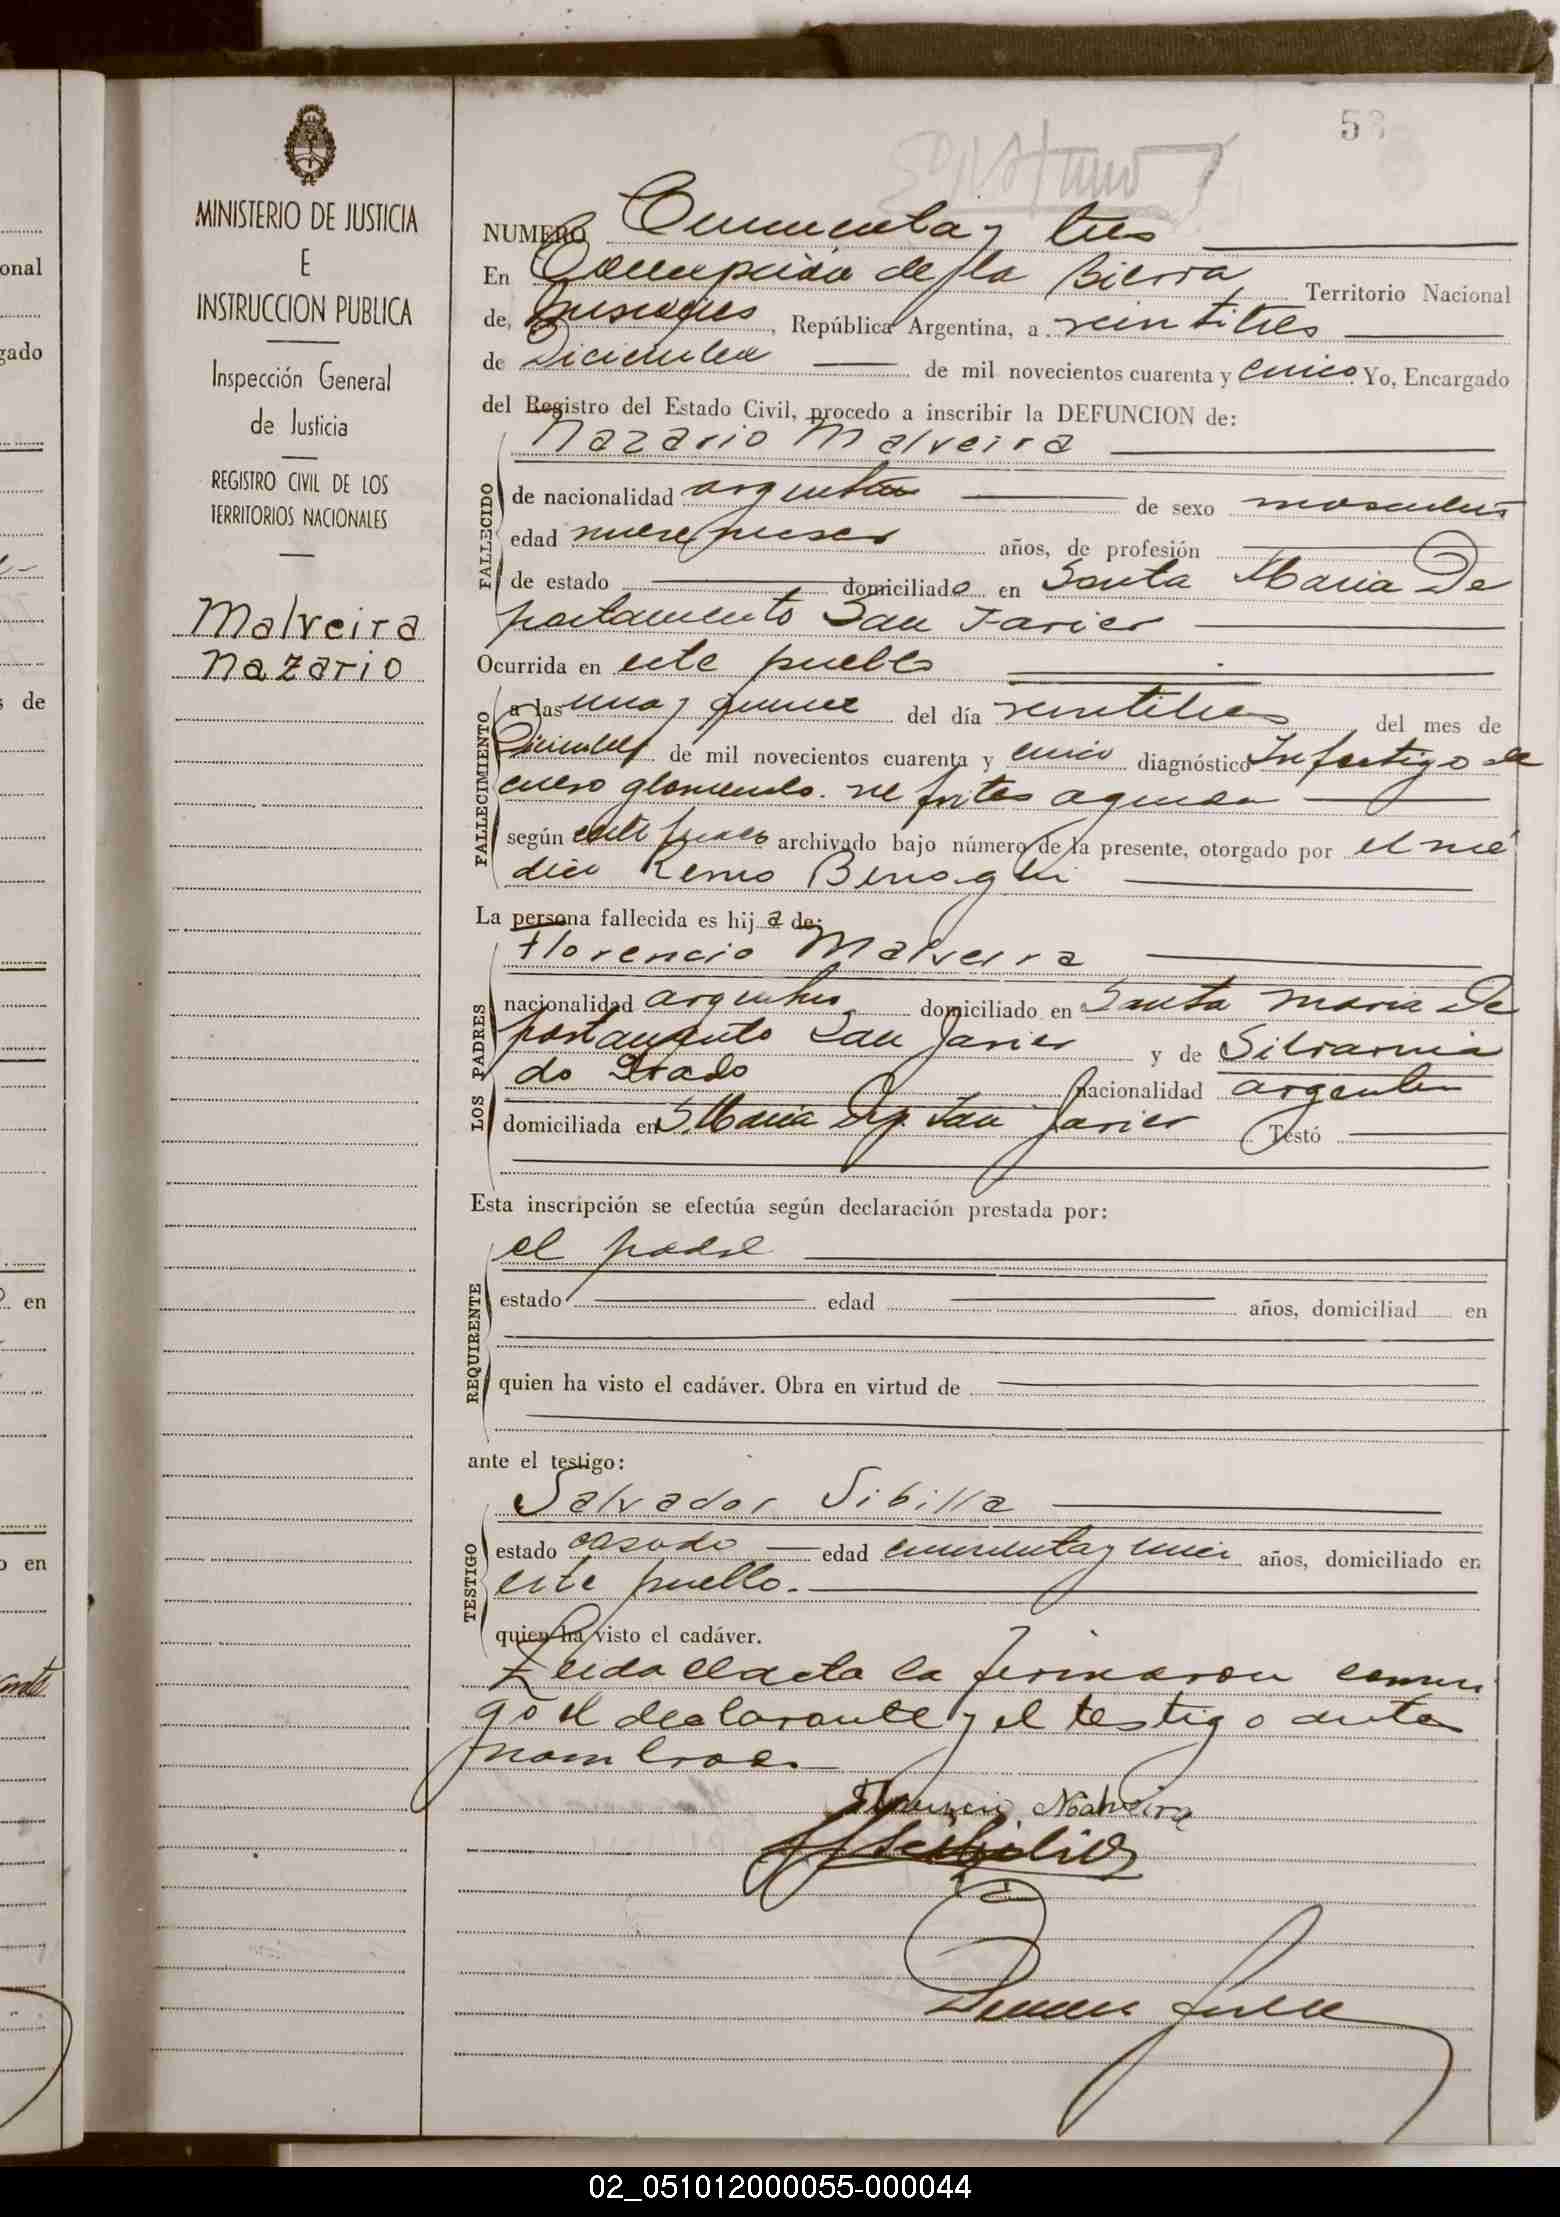 MINISTERIO DE JUSTICIA
E
INSTRUCCION PUBLICA
Inspección General
de Justicia
REGISTRO CIVIL DE LOS
TERRITORIOS NACIONALES
Malveira
Nazario
NUMERO Cincuenta y tres
En Concepción de la Sierra Territorio Nacional
de, Misiones, República Argentina, a veintitres
de Diciembre de mil novecientos cuarenta y cinco. Yo, Encargado
del Registro del Estado Civil, procedo a inscribir la DEFUNCION de:
Nazario Malveira
FALLECIDO
de nacionalidad argentino de sexo masculino
edad nueve meses años, de profesión
de estado domiciliado en Santa Maria De
partamento San Javier
Ocurrida en este pueblo
FALLECIMIENTO
a las una y quince del día veintitres del mes de
Diciembre de mil novecientos cuarenta y cinco diagnóstico
según certificado archivado bajo número de la presente, otorgado por el mé
dico Remo
La persona fallecida es hij a de:
LOS PADRES
Florencio Malveira
nacionalidad argentino domiciliado en Santa Maria De
partamento San Javier y de
do Prado nacionalidad argentina
domiciliada en S. Maria Dep. San Javier Testó
Esta inscripción se efectúa según declaración prestada por:
REQUIRENTE
el padre
estado edad años, domiciliad en
quien ha visto el cadáver. Obra en virtud de
ante el testigo:
TESTIGO
Salvador Sibilla
estado casado edad años, domiciliado en
este pueblo.
quien ha visto el cadáver.
Leida el acta la firmaron conmi
go el declarante y el testigo antes
nombrados
Florencio Malveira
02_051012000055-000044